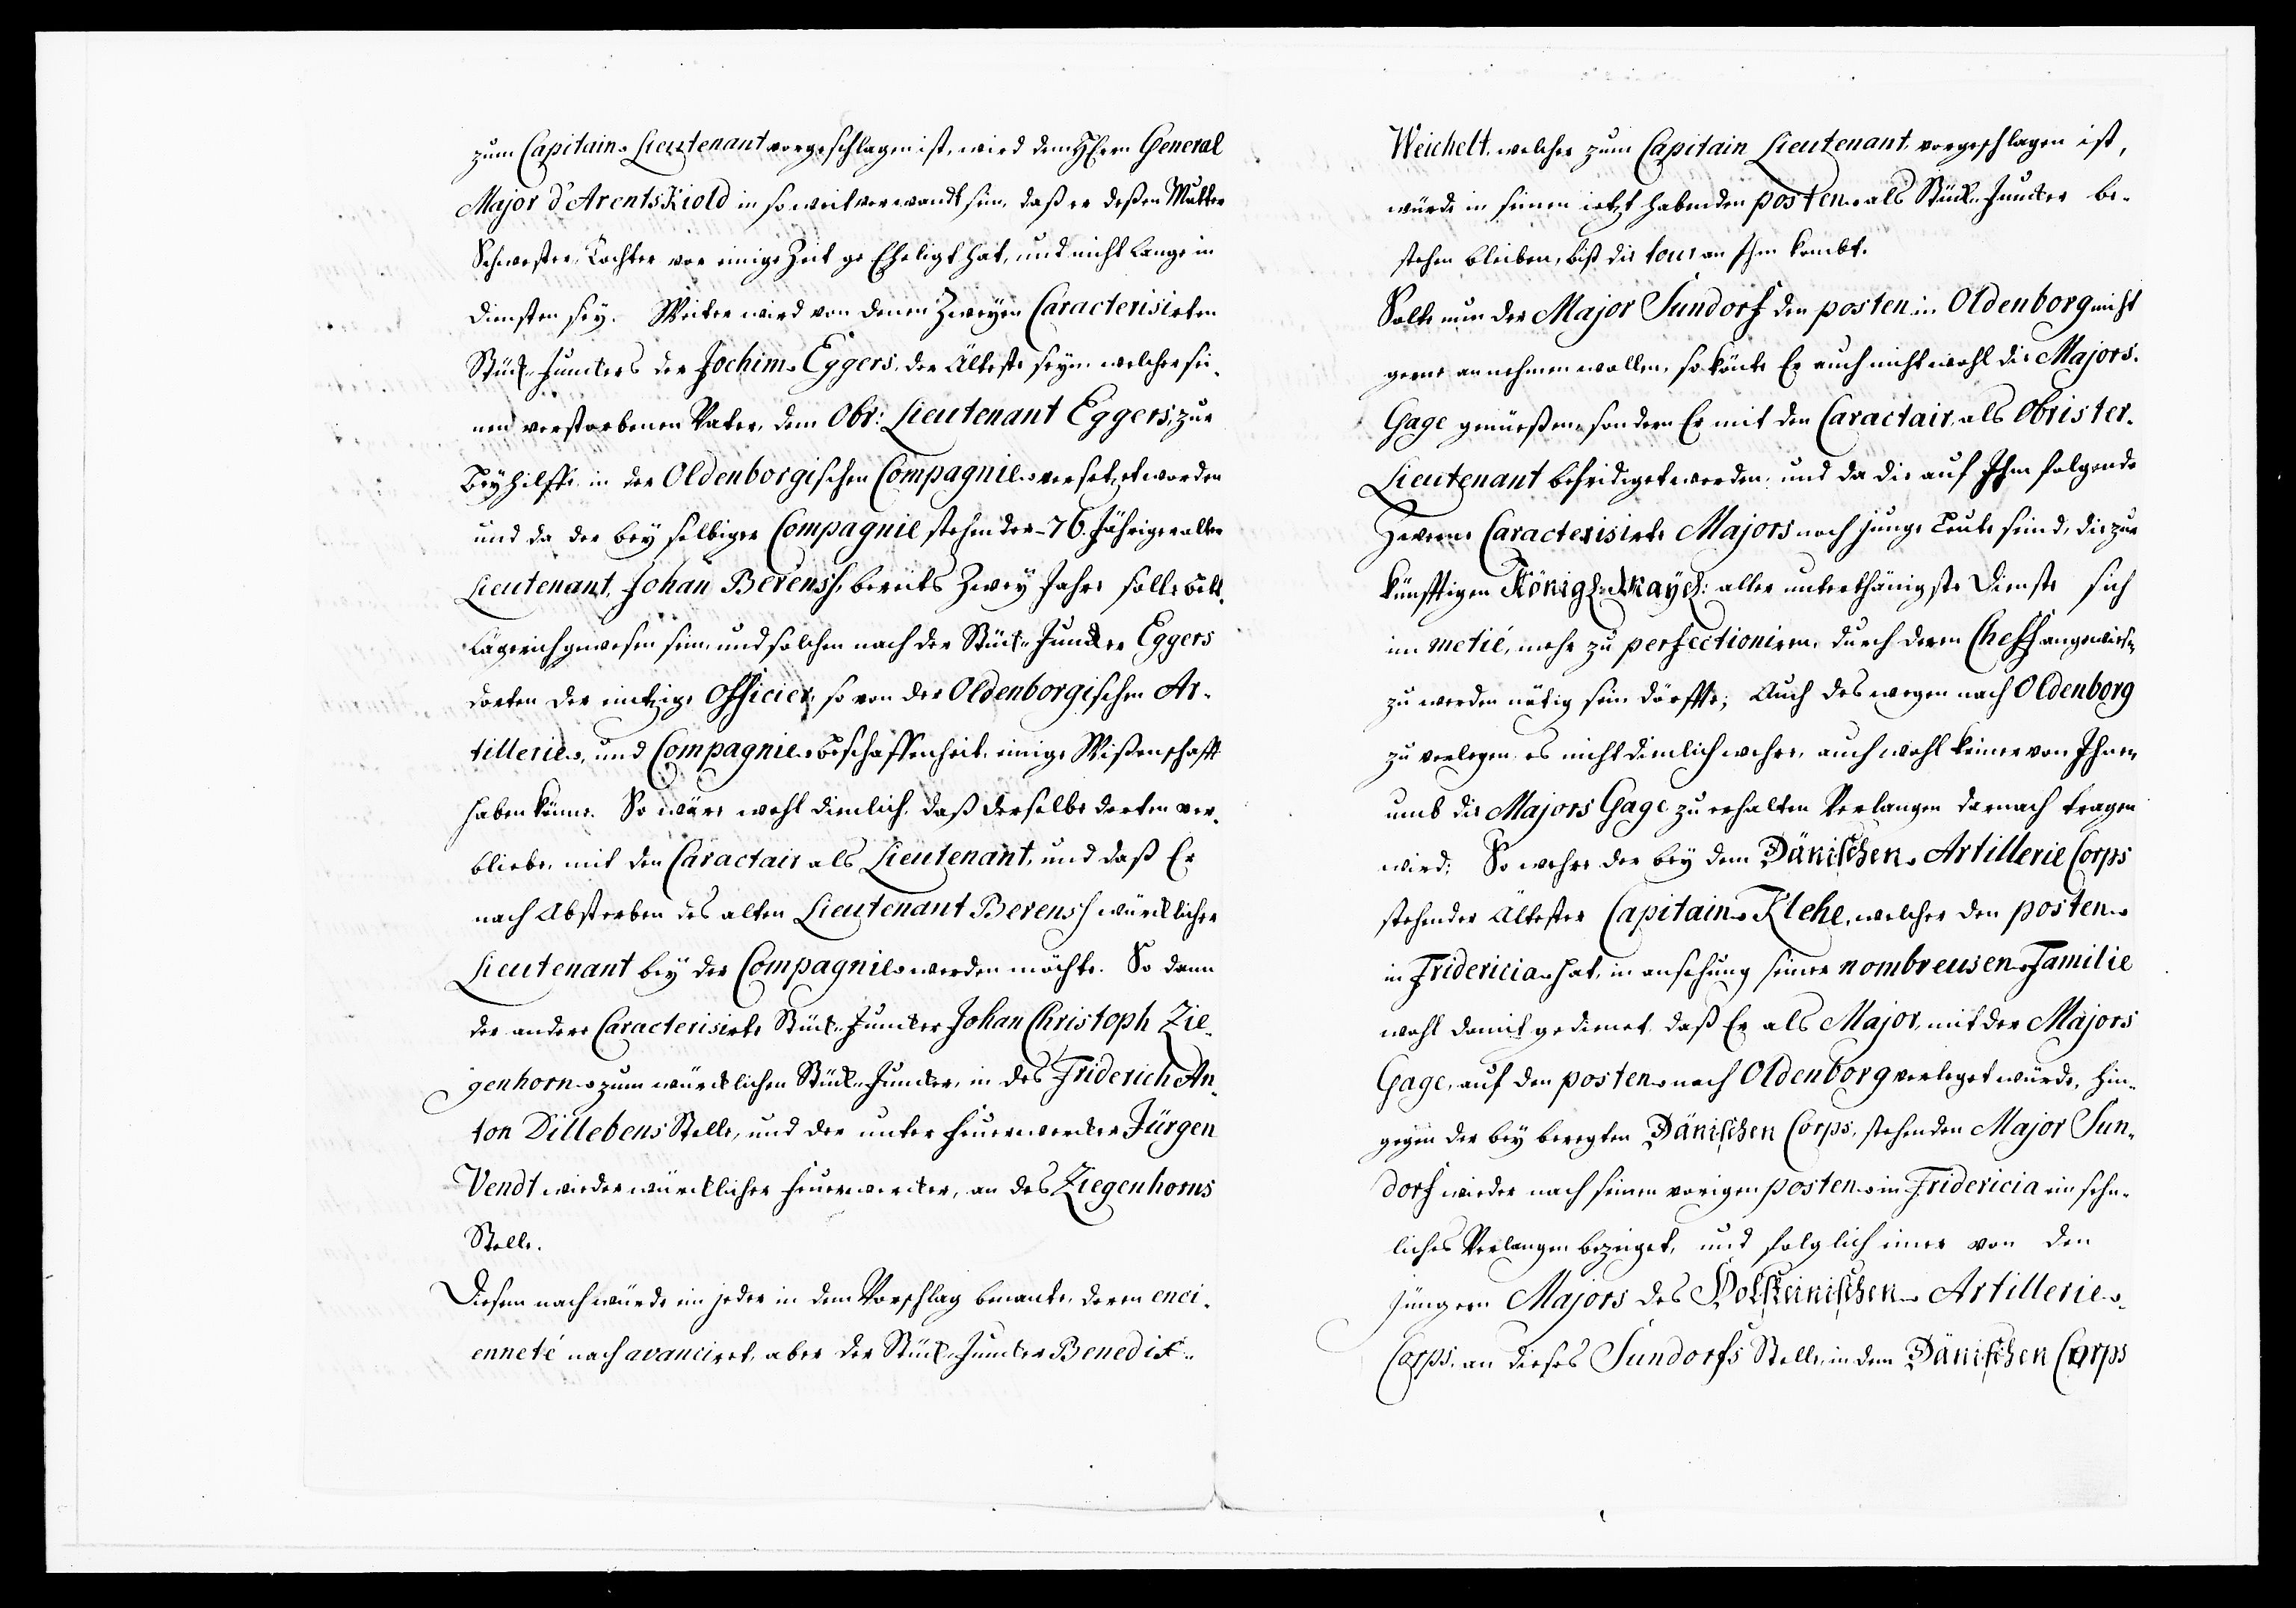 zum Capitain Lieutenant vorgeschlagen ist, wird dem HErrn General
Major d'ArentsKiold in so weit verwandt sein, daß er deßen Mutter
Schwester Tochter vor einige Zeit geEheligt hat, und nicht lange in
diensten sey. Weiter wird von denen Zweyen Caracterisirten
Stück Junckers der Jochim Eggers, der Älteste seyn, welcher sei-
nen verstorbenen Vater, dem Obr: Lieutenant Eggers, zur
Beyhilffe in der Oldenborgischen Compagnie versetzet worden
und da der bey selbiger Compagnie stehender 76. Jähriger alter
Lieutenant, Johan Berens, bereits Zwey Jahre solte bett-
lägerich gewesen sein, und solchem nach der Stück Juncker Eggers
dorten der eintzige Officier, so von der Oldenborgischen Ar-
tillerie, und Compagnie Beschaffenheit, einige Wißenschafft
haben könne. So wäre wohl dienlich, daß derselbe dorten ver-
bliebe, mit den Caractair als Lieutenant, und daß Er
nach Absterben des alten Lieutenant Berens würcklicher
Lieutenant bey der Compagnie werden möchte. So dann
der andere Caracterisirte Stück Juncker Johan Christoph Zie-
genhorn zum würcklichen Stück Juncker, in des Friderich An-
ton Dillebens Stelle, und der unter Feuerwercker Jürgen
Vendt wieder würcklicher Feuerwercker, an des Ziegenhorns
Stelle.
Diesem nach würde ein jeder in dem Vorschlag benante, deren enci-
enneté nach avanciret, aber der Stück Juncker Benedix
Weichelt, welcher zum Capitain Lieutenant, vorgeschlagen ist,
würde in seinen ietzt habenden posten als Stück Juncker be-
stehen bleiben, biß die tour an Ihm kombt.
Solte nun der Major Sundorf den posten in Oldenborg nicht
gerne annehmen wollen, so könte Er auch nicht wohl die Majors
Gage genießen, sondern Er mit den Caractair, als Obrister-
Lieutenant befridiget werden, und da die auf Ihm folgende
Herren Caracterisirte Majors noch junge Leute seind, die zur
künfftigen Königl. Mayt: aller unterthänigste Dienste sich
im metié, mehr zu perfectioniren, durch deren Cheff angewiesen
zu werden nötig sein dörffte; Auch deswegen nach Oldenborg
zu verlegen es nicht dienlich wehre, auch wohl keiner von Ihnen
umb die Majors Gage zu erhalten Verlangen darnach tragen
wird; So wehre der bey dem Dänischen Artillerie Corps
stehender Ältester Capitain Klehe, welcher den posten
in Fridericia hat, in ansehung seiner nombreusen Familie
wohl damit gedienet, daß Er als Major, mit der Majors
Gage, auf den posten nach Oldenborg verleget würde, hin-
gegen der bey beregten Dänischen Corps, stehenden Major Sun-
dorf wieder nach seinen vorigen posten in Fridericia ein sehn-
liches Verlangen bezeiget, und folglich einer von den
jüngern Majors des Holsteinischen Artillerie
Corps, an dieses Sundorfs Stelle, in dem Dänischen Corps